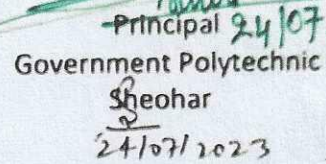 Principal 24/07
Government Polytechnic
Sheohar
24/07/2023